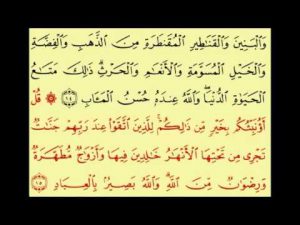 وَالْبَنِينَ وَالْقَنَاطِيرِ الْمُقَنطَرَةِ مِنَ الذَّهَبِ وَالْفِضَّةِ
وَالْخَيْلِ الْمُسَوَّمَةِ وَالْأَنْعَامِ وَالْحَرْثِ ۗ ذَٰلِكَ مَتَاعُ
الْحَيَاةِ الدُّنْيَا ۖ وَاللَّهُ عِندَهُ حُسْنُ الْمَآبِ ١٤ ۞ قُلْ
أَؤُنَبِّئُكُم بِخَيْرٍ مِّن ذَٰلِكُمْ ۚ لِلَّذِينَ اتَّقَوْا عِندَ رَبِّهِمْ جَنَّاتٌ
تَجْرِي مِن تَحْتِهَا الْأَنْهَارُ خَالِدِينَ فِيهَا وَأَزْوَاجٌ مُّطَهَّرَةٌ
وَرِضْوَانٌ مِّنَ اللَّهِ ۗ وَاللَّهُ بَصِيرٌ بِالْعِبَادِ ١٥